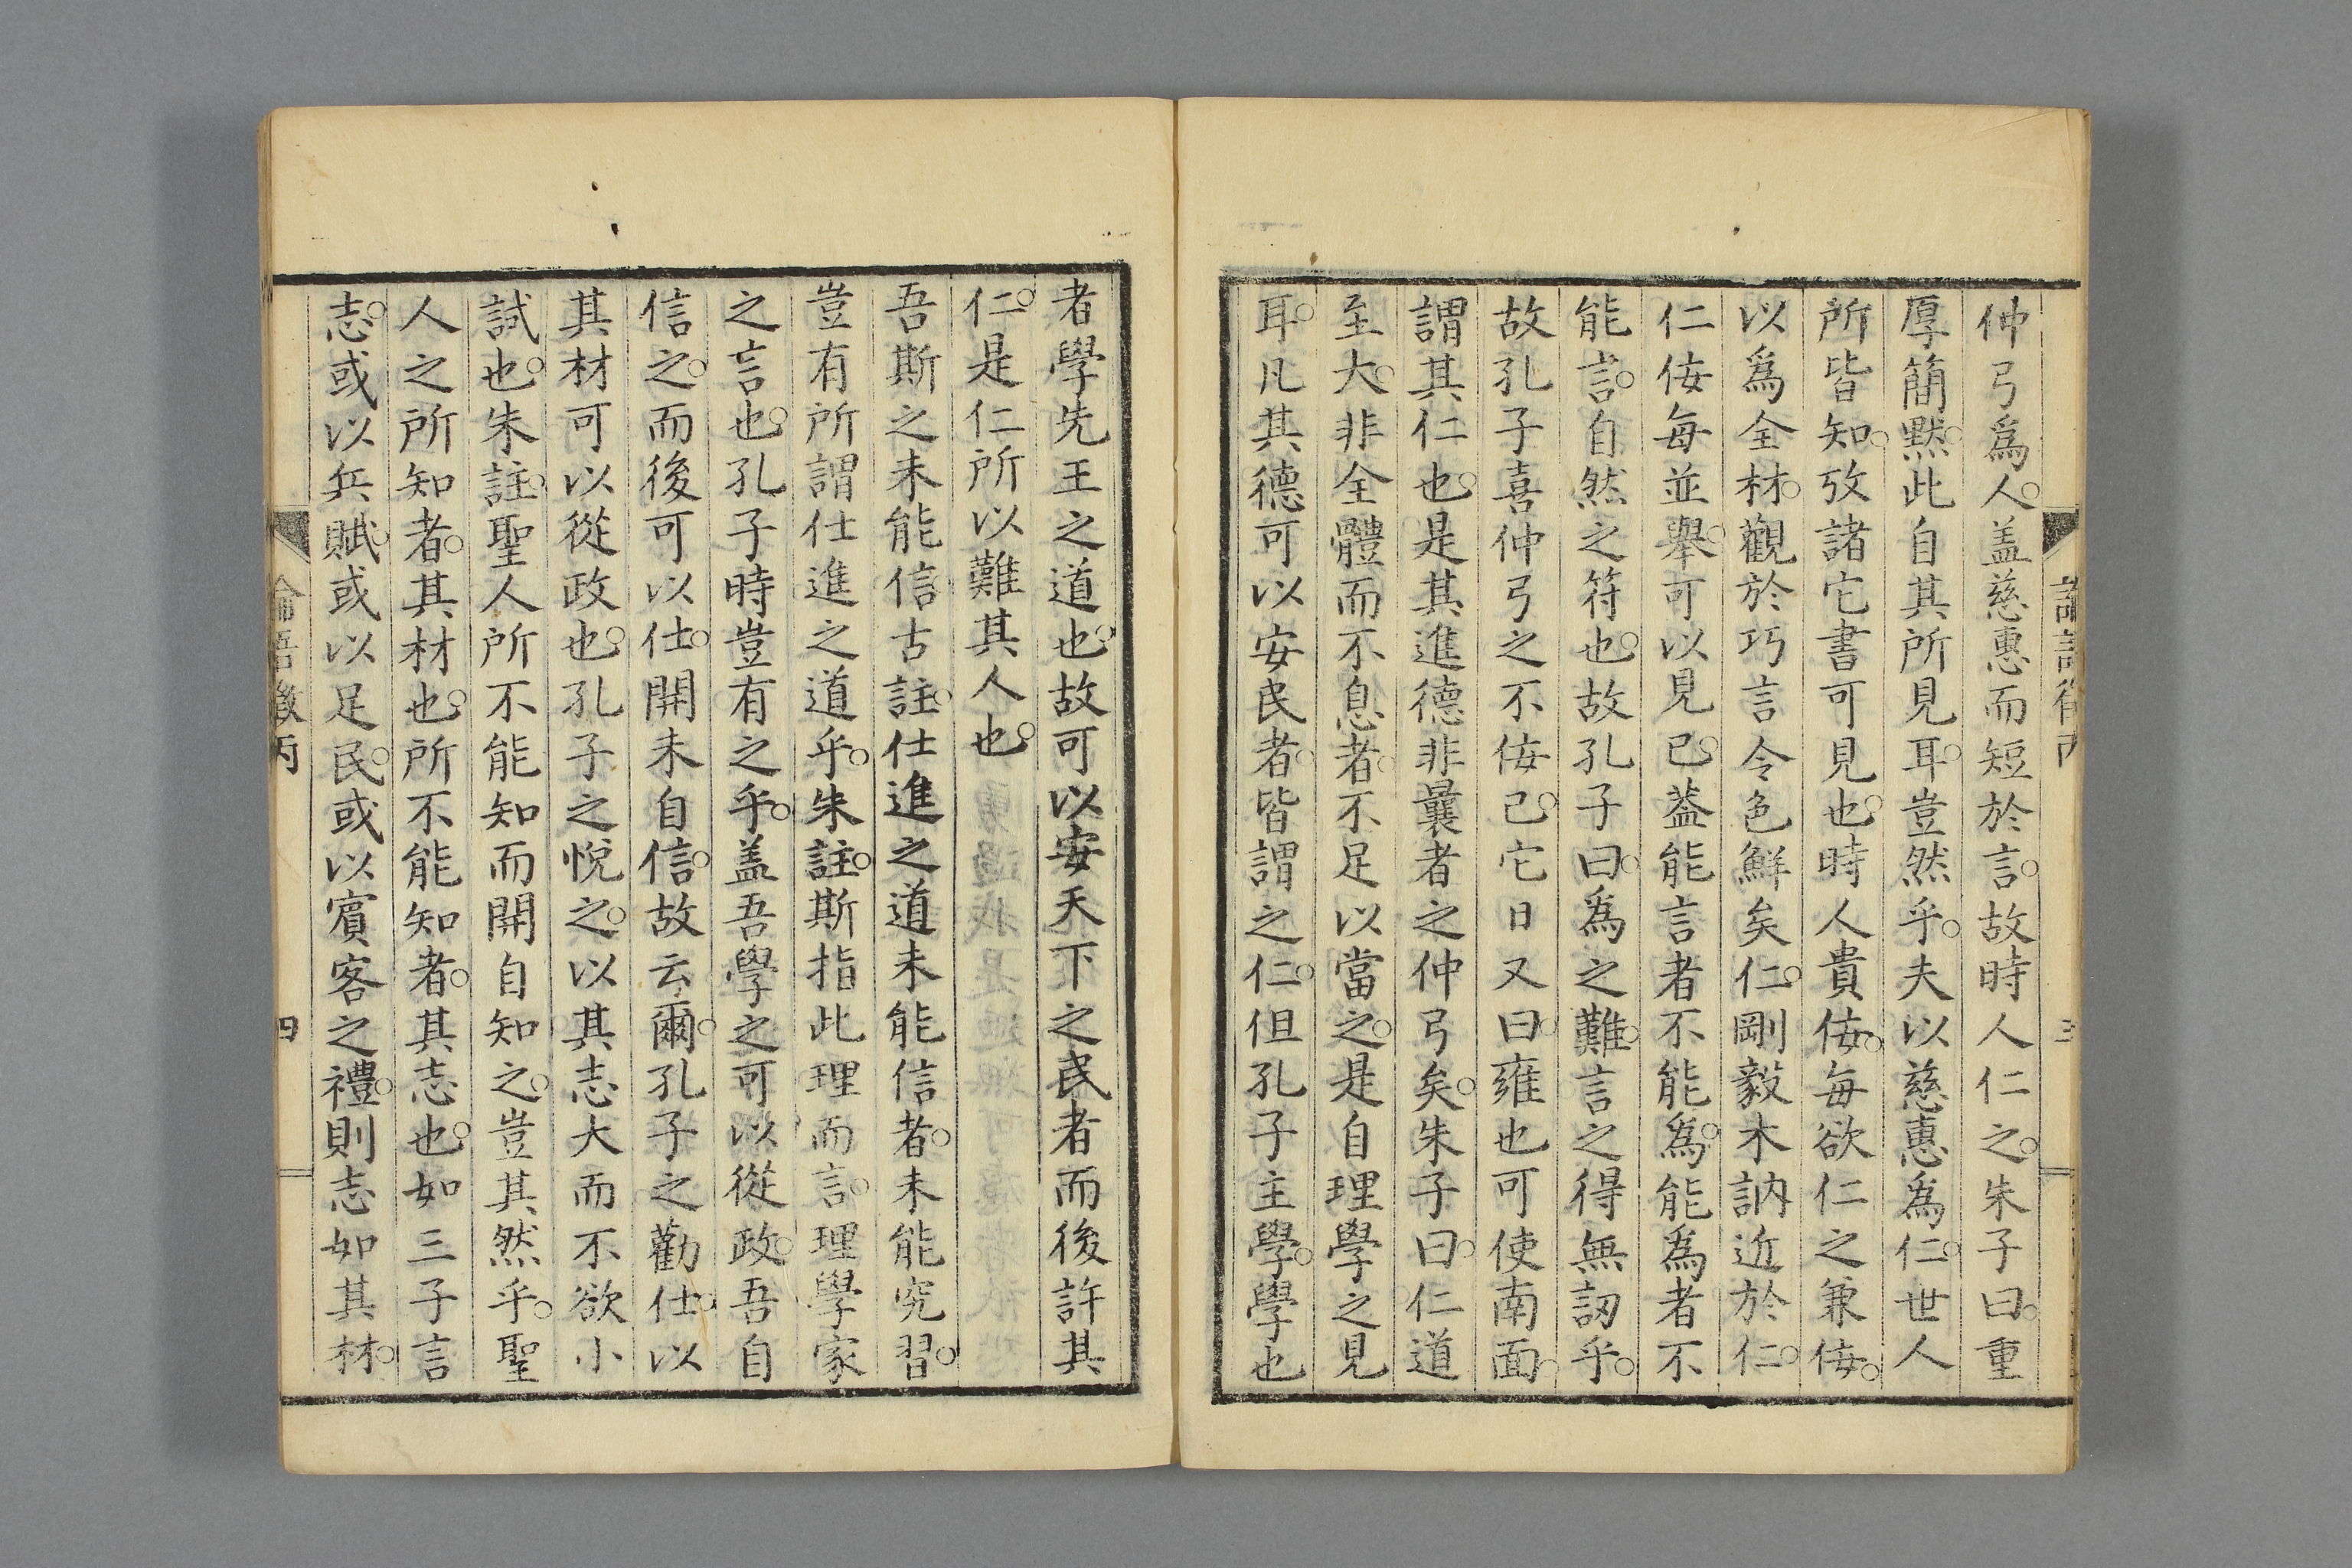 仲弓爲人。盖慈惠而短於言。故時人仁之。朱子曰。重
厚簡默。此自其所見耳。豈然乎。夫以慈惠爲仁。世人
所皆知。攷諸它書可見也。時人貴侫。每欲仁之兼侫。
以爲全材。觀於巧言令色鮮矣仁。剛毅木訥近於仁。
仁侫每並舉。可以見已。葢能言者不能爲。能爲者不
能言。自然之符也。故孔子曰。爲之難。言之得無訒乎。
故孔子喜仲弓之不侫已。它日又曰。雍也可使南面。
謂其仁也。是其進德非曩者之仲弓矣。朱子曰。仁道
至大。非全體而不息者。不足以當之。是自理學之見
耳。凡其德可以安民者。皆謂之仁。但孔子主學。學也
論語徵丙
三
者學先王之道也。故可以安天下之民者而後許其
仁。是仁所以難其人也。
吾斯之未能信古註。仕進之道未能信者。未能究習。
豈有所謂仕進之道乎。朱註。斯指此理而言。理學家
之言也。孔子時豈有之乎。盖吾學之可以從政。吾自
信之。而後可以仕。開未自信。故云爾。孔子之勸仕。以
其材可以從政也。孔子之悅之。以其志大而不欲小
試也。朱註。聖人所不能知而開自知之。豈其然乎。聖
人之所知者。其材也。所不能知者。其志也。如三子言
志。或以兵賦。或以足民。或以賓客之禮。則志如其材。
論語徵丙
四